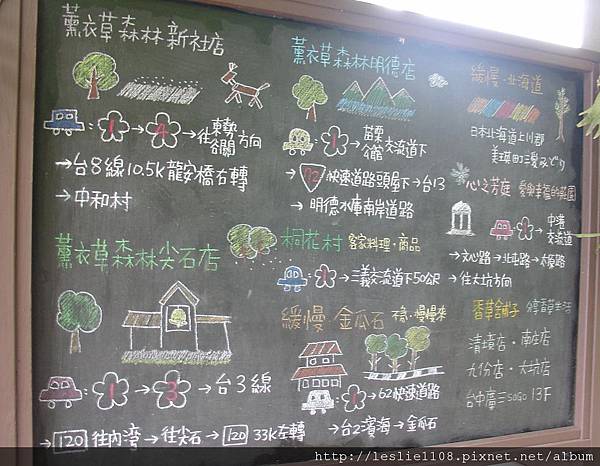 薰衣草森林 新社店
: 1 → 4 → 往東勢谷關 方向
→ 台8線 10.5K 龍安橋右轉
→ 中和村
薰衣草森林尖石店
: 1 → 3 → 台3線
→ 120 往內灣 → 往尖石 → 120 33K左轉
薰衣草森林明德店
: 1 苗栗公館交流道下
→ 72 快速道路頭屋下 → 台13
→ 明德水庫南岸道路
桐花村 客家料理·商品
: 1 → 三義交流道下50公尺
緩慢 金瓜石 不急·慢慢來
: 1 → 62快速道路
→ 台2濱海 → 金瓜石
緩慢·北海道
日本北海道上川郡
美瑛町
心之芳庭
: 1 中港交流道
→ 文心路 → 北屯路 → 太原路
→ 往大坑方向
香草舖子 分享香草生活
清境店·南庄店
九份店·大坑店
台中廣三SOGO 13F
http://leslie1108.pixnet.net/album